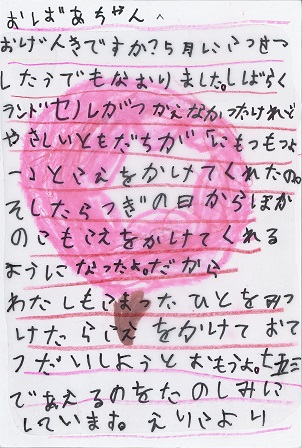 おばあちゃんへ
おげんきですか?5月にこっせつ
したうでもなおりました。しばらく
ランドセルがつかえなかったけれど
やさしいともだちが「にもつもつよ
ー」とこえをかけてくれたの。
そしたらつぎの日からほか
のこもこえをかけてくれる
ようになったよ。だから
わたしもこまったひとをみつ
けたらこえをかけておて
つだいしようとおもうよ。七五三
であえるのをたのしみに
しています。えりこより